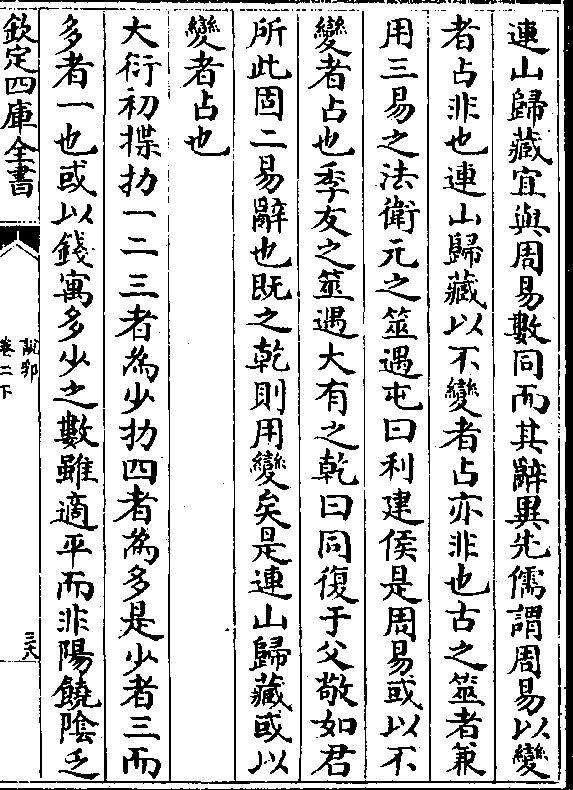 連山歸藏宜與周易數同而其辭異先儒謂周易以變
者占非也連山歸藏以不變者占亦非也古之筮者兼
用三易之法衛元之筮遇屯曰利建侯是周易或以不
變者占也季友之筮遇大有之乾曰同復于父敬如君
所此固二易辭也既之乾則用變矣是連山歸藏或以
變者占也
大衍初揲扐一二三者為少扐四者為多是少者三而
多者一也或以錢寓多少之數雖適平而非陽饒陰乏
欽定四庫全書
說郛
卷二下
三六